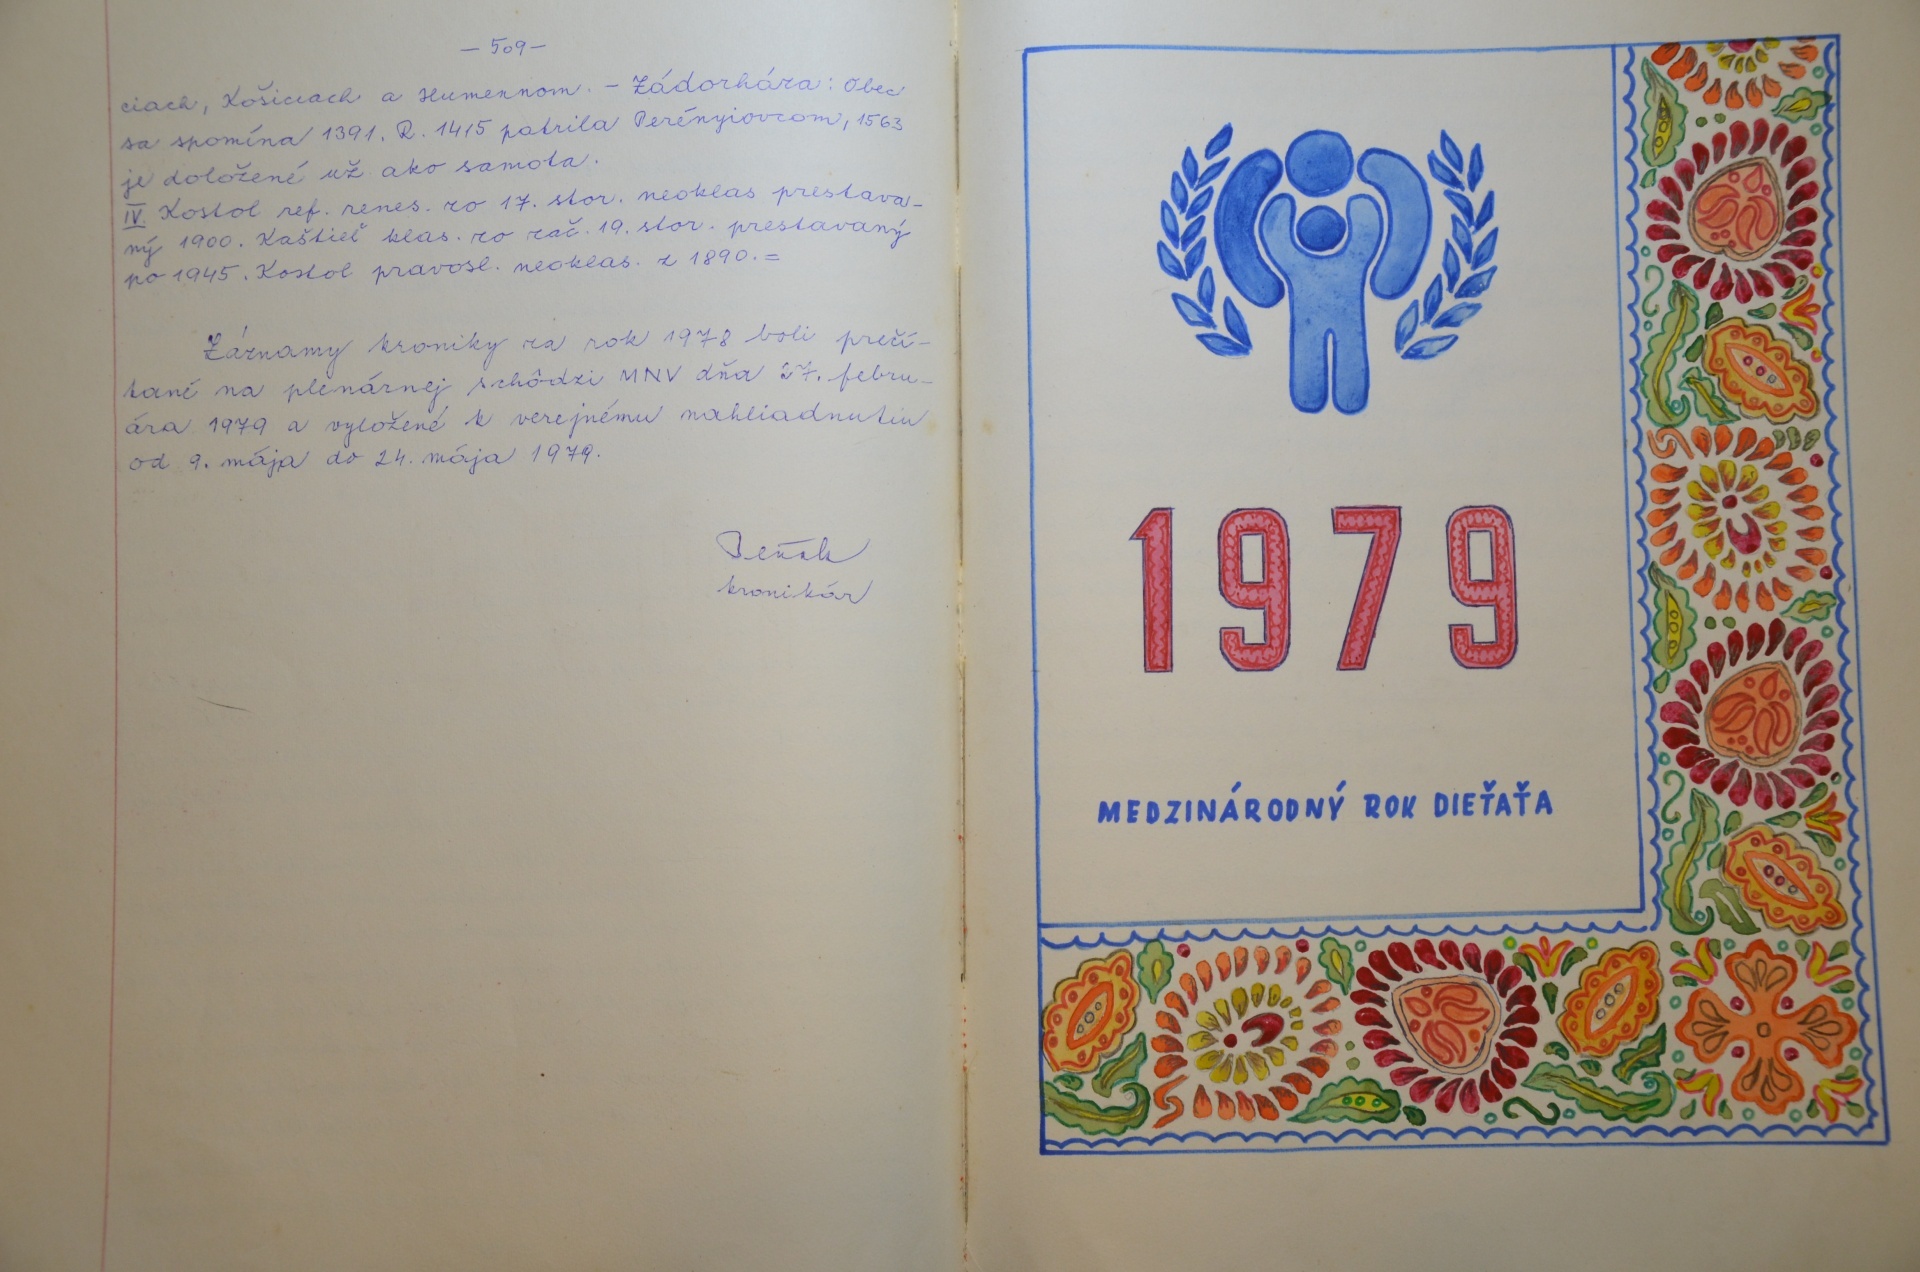 — 509 —
ciach, Košiciach a Humennom. – Zádorháza: Obec
sa spomína 1391. R. 1415 patrila Perényiovcom, 1563
je doložené už ako samota.
IV. Kostol ref. renes. zo 17. stor. neoklas prestava-
ný 1900. Kaštieľ klas. zo zač. 19. stor. prestavaný
po 1945. Kostol pravosl. neoklas. z 1890. =
Záznamy kroniky za rok 1978 boli prečí-
tané na plenárnej schôdzi MNV dňa 27. febru-
ára 1979 a vyložené k verejnému nahliadnutiu
od 9. mája do 24. mája 1979.
kronikár
1979
MEDZINÁRODNÝ ROK DIEŤAŤA